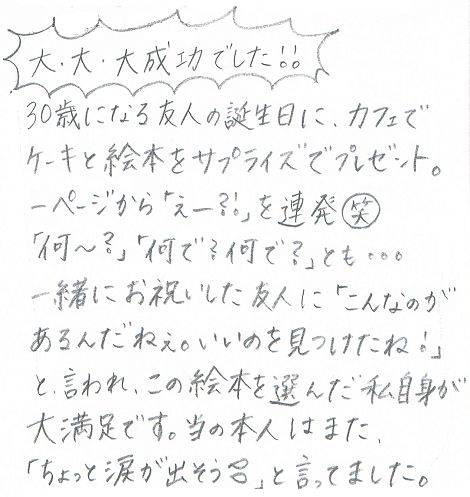 大・大・大成功でした!!
30歳になる友人の誕生日に、カフェで
ケーキと絵本をサプライズでプレゼント。
一ページから「えー?!」を連発㊗笑
「何〜?」「何で?何で?」とも・・・
一緒にお祝いした友人に「こんなのが
あるんだねぇ。いいのを見つけたね!」
と言われ、この絵本を選んだ私自身が
大満足です。当の本人はまた、
「ちょっと涙が出そう」と言ってました。